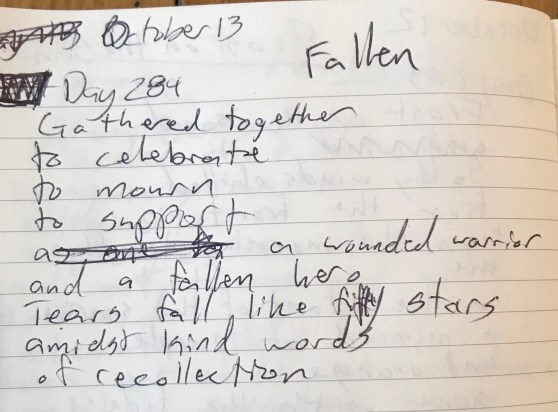 October 13
Fallen
Day 284
Gathered together
to celebrate
to mourn
to support
a wounded warrior
and a fallen hero
Tears fall like fifty stars
amidst kind words
of recollection